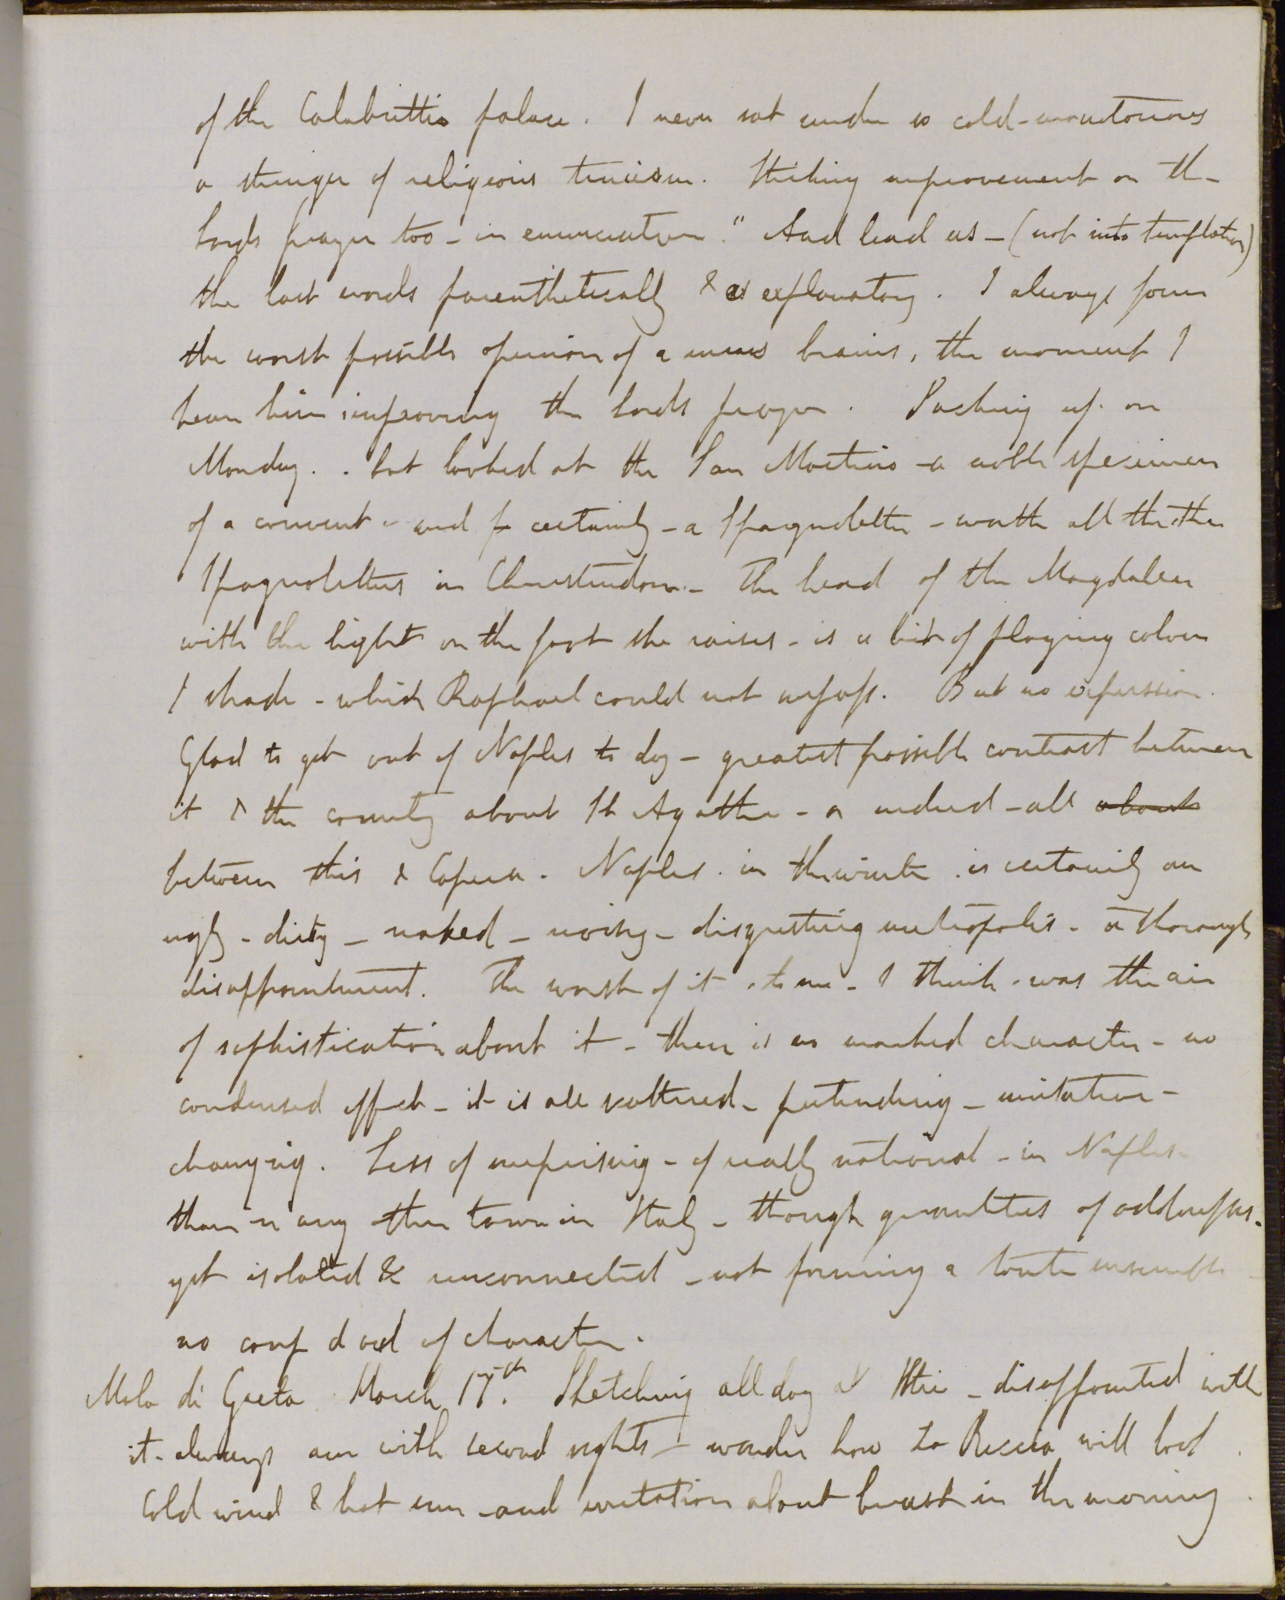 of the Calabritti palace. I never sat under so cold-monotonous
a stringer of religious truism. Striking improvement on the
Lords prayer too - in enunciation. " And lead us - (not into temptation)
the last words parenthetically & as explanatory. I always form
the worst possible opinion of a mans brains, the moment I
hear him improving the Lords prayer. Packing up on
Monday.. but looked at the San Martino - a noble specimen
of a convent - and certainly - a Spagnoletto - worth all the other
Spagnolettos in Christendom - The head of the Magdalen
with the light on the foot she raises - is a bit of playing colour
& shade - which Raphael could not surpass. But no expression.
Glad to get out of Naples to day - greatest possible contrast between
it & the country about St Agatha - or indeed - all about
between this & Capua. Naples. in the winter. is certainly an
ugly - dirty - naked - noisy - disgusting metropolis - a thorough
disappointment. The worst of it. to me - I think. was the air
of sophistication about it - there is no marked character - no
condensed effect - it is all scattered - pretending - imitative -
changing. Less of surprising - of really national - in Naples
than in any other town in Italy - though quantities of oddnesses -
yet isolated & unconnected - not forming a toute ensemble -
no coup d'oeil of character.
Mola di Gaeta. March 17th. Sketching all day at Itri - disappointed with
it - always am with second sights - wonder how La Riccia will look.
Cold wind & hot sun - and irritation about breast in the morning.